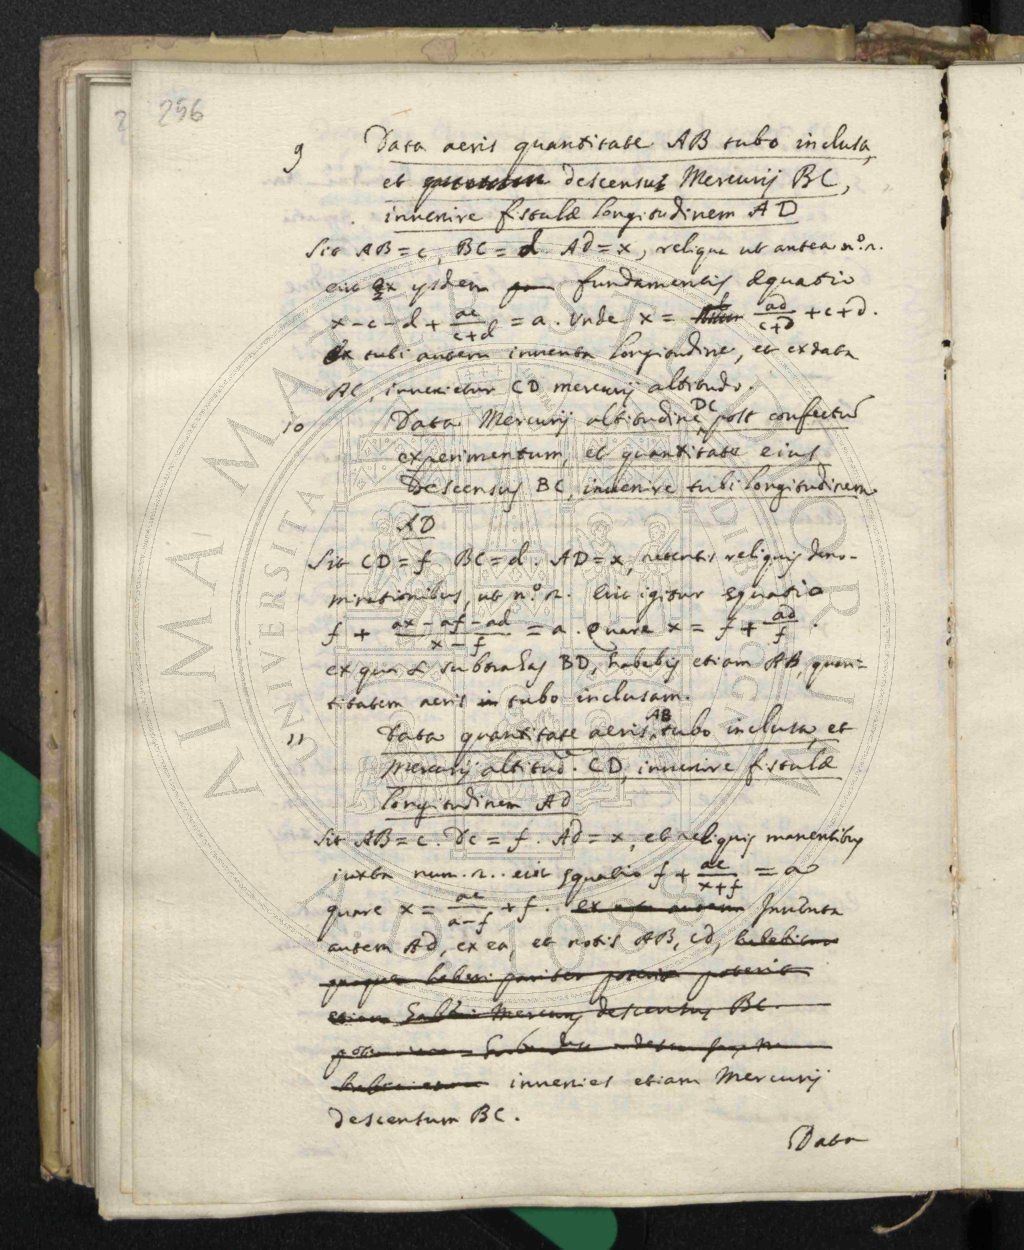 296
9 Data aeris quantitate AB tubo inclusa,
et descensus Mercurij BC,
invenire fistulæ longitudinem AD
Sit AB = c, BC = d. AD = x, reliqua ut antea n.º 2.
erit ex ijsdem fundamentis æquatio
x - c - d + ac/c+d = a. Unde x = ad/c+d + c + d.
Ex tubi autem inventa longitudine, et ex data
AC, invenietur CD mercurij altitudo.
10 Data Mercurij altitudine DC post confectum
experimentum, et quantitate eius
Descensus BC, invenire tubi longitudinem
AD
Sit CD = f. BC = d. AD = x, retentis reliquis deno-
minationibus, ut n.º 2. Erit igitur equatio
f + ax - af - ad/x - f = a. Quare x = f + ad/f.
ex qua si subtrahas BD, habebis etiam AB, quan=
titatem aeris in tubo inclusam.
11 Data quantitate aeris AB tubo inclusa, et
Mercurij altitud.e CD, invenire fistulæ
longitudinem AD
Sit AB = c. DC = f. AD = x, et reliquis manentibus
iuxta num. 2.. erit equatio f + ac/x + f = a
quare x = ac/a - f + f. ex autem Inventa
autem AD, ex ea, et notis AB, CD,
quoque haberi pariter poterit
etiam Mercurij descensus BC.
invenies etiam Mercurij
descensum BC.
Data
ALMA MATER STUDIORUM
UNIVERSITÀ DI BOLOGNA
A.D. 1088